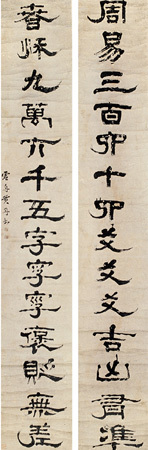 周易三百卯十卯爻爻爻吉凶胥準
春秋九萬六千五字字字褒貶無差